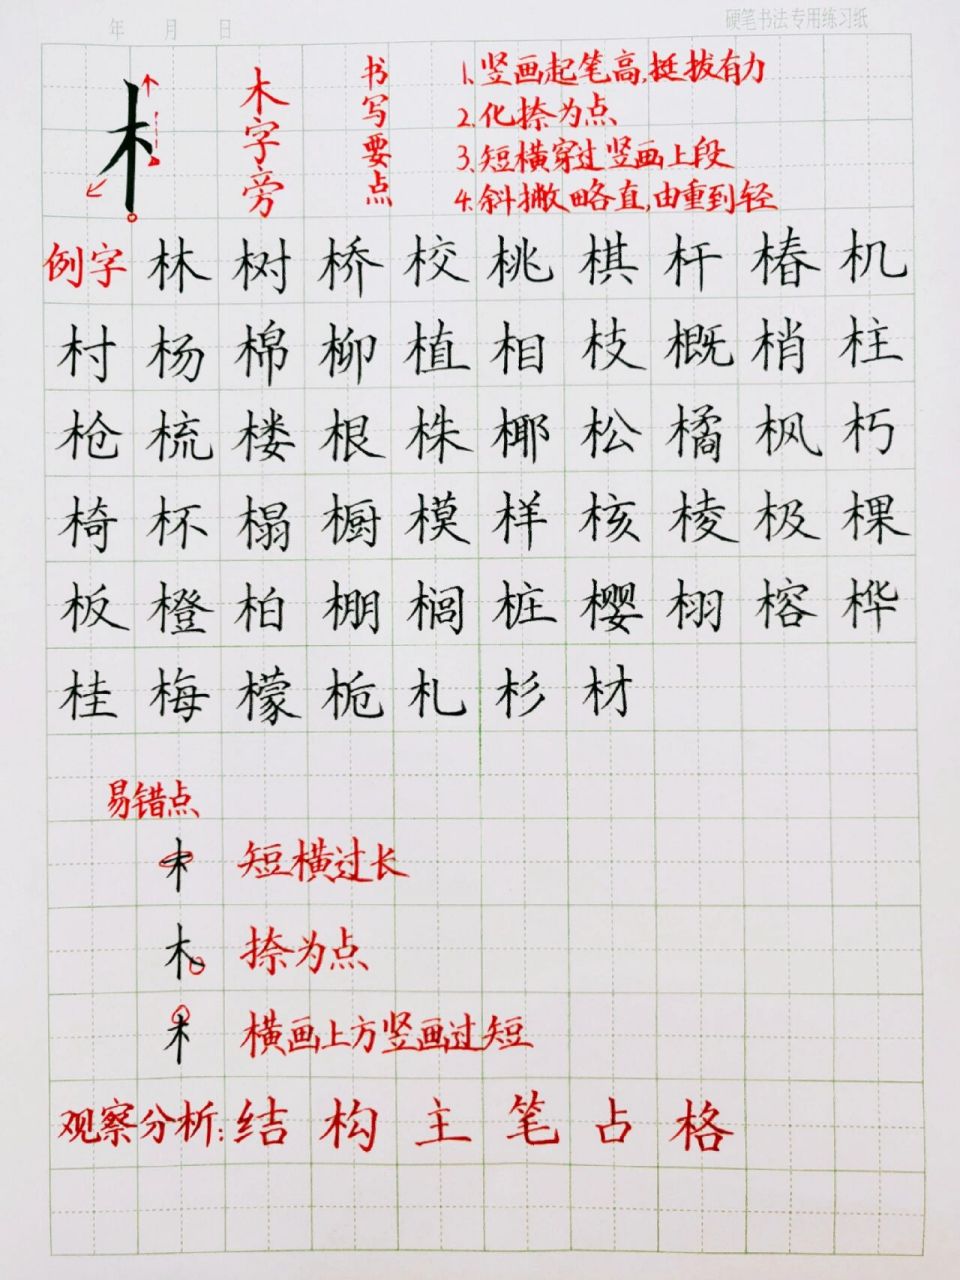 年 月 日
硬笔书法专用练习纸
木字旁
书写要点
1.竖画起笔高,挺拔有力
2.化捺为点
3.短横穿过竖画上段
4.斜撇略直,由重到轻
例字 林 树 桥 校 桃 棋 杆 椿 机
村 杨 棉 柳 植 相 枝 概 梢 柱
枪 梳 楼 根 株 椰 松 橘 枫 朽
椅 杯 榻 橱 模 样 核 棱 极 棵
板 橙 柏 棚 榈 桩 樱 栩 榕 桦
桂 梅 檬 栀 札 杉 材
易错点
短横过长
捺为点
横画上方竖画过短
观察分析:结 构 主 笔 占 格